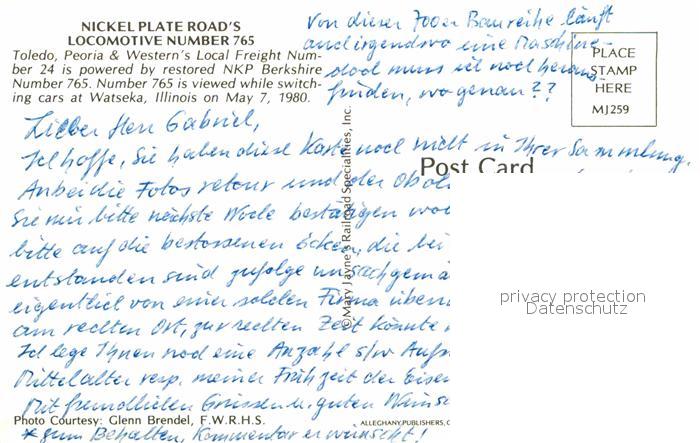 NICKEL PLATE ROAD'S
LOCOMOTIVE NUMBER 765
Toledo, Peoria & Western's Local Freight Num-
ber 24 is powered by restored NKP Berkshire
Number 765. Number 765 is viewed while switch-
ing cars at Watseka, Illinois on May 7, 1980.
Von dieser 700er Baureihe läuft
auch irgendwo eine Maschine -
doch muss ich noch heraus-
finden, wo genau??
PLACE
STAMP
HERE
MJ259
Lieber Herr Gabriel,
Ich hoffe, Sie haben diese Karte noch nicht in Ihrer Sammlung.
Post Card
Anbei die Fotos retour und der
Sie mir bitte nächste Woche bestätigen
bitte auf die bestossenen Ecken, die bei
entstanden sind zufolge
eigentlich von einer solchen Firma
am rechten Ort, zur rechten Zeit könnte
Ich lege Ihnen noch eine Anzahl s/w
Mittelalter resp. meiner Frühzeit der
Mit freundlichen Grüssen u. guten
* zum Behalten, Kommentar erwünscht!
©Mary Jayne's Railroad Specialties, Inc.
privacy protection
Datenschutz
Photo Courtesy: Glenn Brendel, F.W.R.H.S.
ALLEGHANY PUBLISHERS,